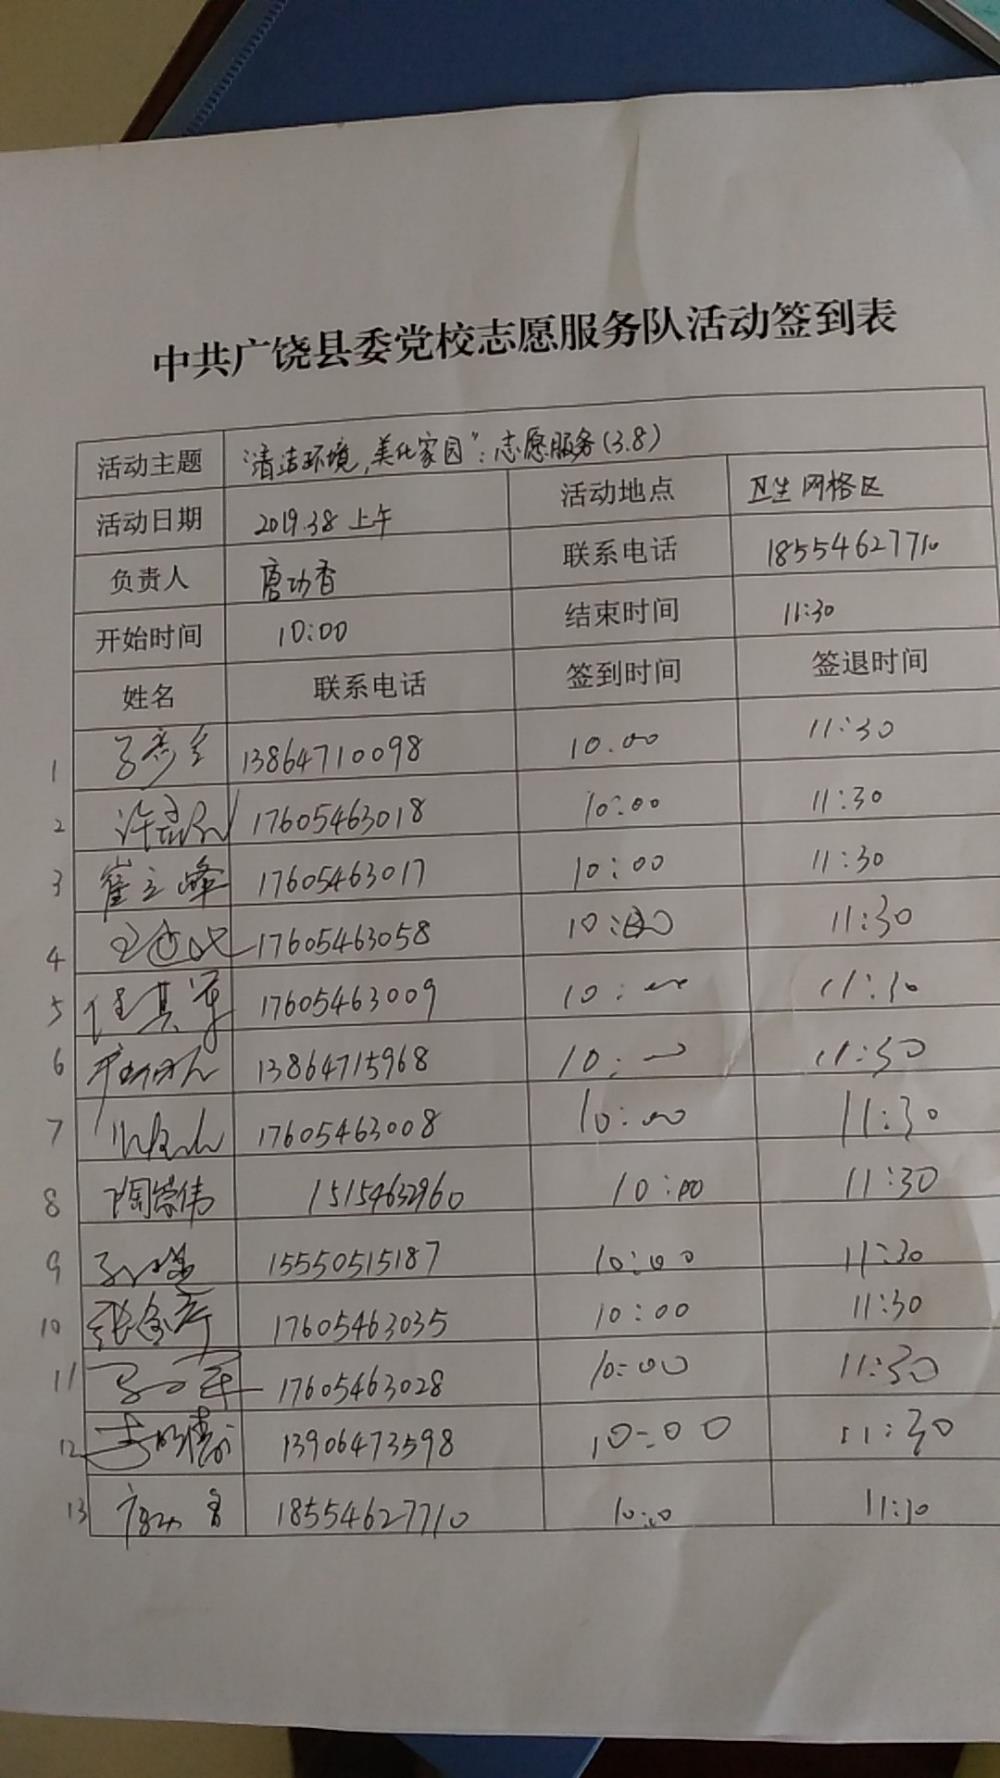 中共广饶县委党校志愿服务队活动签到表
活动主题 “清洁环境,美化家园”:志愿服务(3.8)
活动日期 2019.3.8 上午 活动地点 卫生网格区
负责人 唐功香 联系电话 18554627710
开始时间 10:00 结束时间 11:30
姓名 联系电话 签到时间 签退时间
1 13864710098 10.00 11:30
2 17605463018 10:00 11:30
3 崔立峰 17605463017 10:00 11:30
4 17605463058 10:00 11:30
5 任其军 17605463009 10:00 11:30
6 13864715968 10:00 11:30
7 17605463008 10:00 11:30
8 陶崇伟 15154632960 10:00 11:30
9 15550515187 10:00 11:30
10 17605463035 10:00 11:30
11 17605463028 10:00 11:30
12 13906473598 10:00 11:30
13 唐功香 18554627710 10:00 11:30